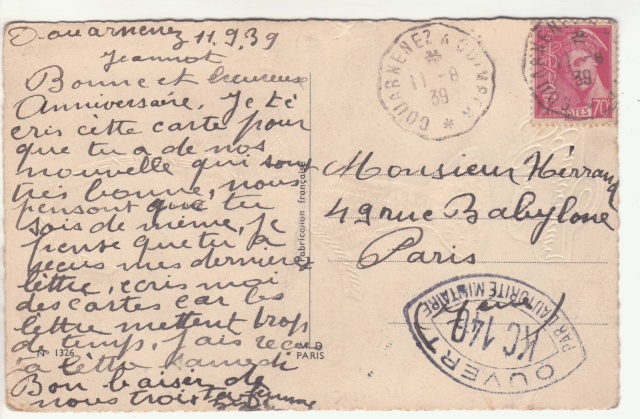 Douarnenez 11.9.39
Jeannot
Bonne et heureuse
Anniversaire. Je té
cris cette carte pour
que tu a de nos
nouvelle qui sont
très bonne, nous
pensont que tu
sois de même, je
pense que tu a
reçus mes dernière
lettre, ecris moi
des cartes car les
lettre mettent trop
de temps, j'ais reçu
ta lettre samedi
Bon baiser de
nous trois ta femme
DOUARNENEZ A QUIMPER
11-9
39
POSTES
70c
Monsieur Hérrang
49 rue Babylone
Paris
Fabrication française
OUVERT
PAR L'AUTORITÉ MILITAIRE
KC 140
N° 1326
M.D
PARIS